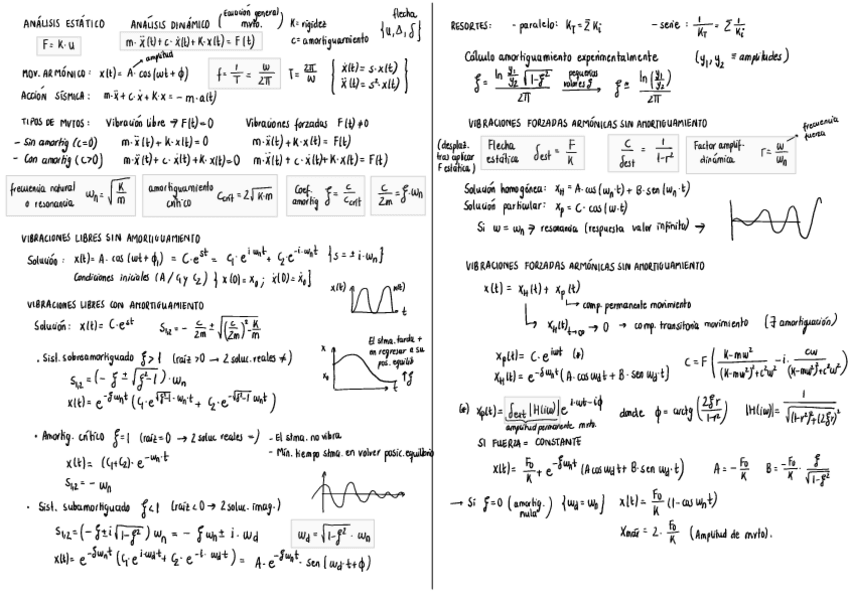 ANÁLISIS ESTÁTICO
F = K·u
ANÁLISIS DINÁMICO (Ecuación general mvto.)
m·ẍ(t) + c·ẋ(t) + K·x(t) = F(t)
K = rigidez
c = amortiguamiento
flecha
{u, Δ, δ}
amplitud
MOV. ARMÓNICO: x(t) = A·cos(ωt + ϕ)
f = 1/T = ω/2π
T = 2π/ω
{ẋ(t) = s·x(t)
ẍ(t) = s²·x(t)}
ACCIÓN SÍSMICA: m·ẍ + c·ẋ + K·x = -m·a(t)
TIPOS DE MVTOS: Vibración libre → F(t) = 0 Vibraciones forzadas F(t) ≠ 0
- Sin amortig (c=0) m·ẍ(t) + K·x(t) = 0 m·ẍ(t) + K·x(t) = F(t)
- Con amortig (c>0) m·ẍ(t) + c·ẋ(t) + K·x(t) = 0 m·ẍ(t) + c·ẋ(t) + K·x(t) = F(t)
frecuencia natural o resonancia ωn = √(K/m)
amortiguamiento crítico Ccrit = 2√(K·m)
Coef. amortig ξ = c/ccrit
c/2m = ξ·ωn
VIBRACIONES LIBRES SIN AMORTIGUAMIENTO
Solución: x(t) = A·cos(ωt + ϕ) = C·e^st = C₁·e^(i·ωn·t) + C₂·e^(-i·ωn·t) {s = ± i·ωn}
Condiciones iniciales (A / C₁ y C₂) {x(0) = x₀; ẋ(0) = ẋ₀}
VIBRACIONES LIBRES CON AMORTIGUAMIENTO
x(t)
t
Solución: x(t) = C·e^st S₁,₂ = - c/2m ± √((c/2m)² - K/m)
· Sist. sobreamortiguado ξ > 1 (raíz > 0 → 2 soluc. reales ≠)
S₁,₂ = (-ξ ± √(ξ²-1))·ωn
x(t) = e^(-ξωnt) (C₁·e^(√(ξ²-1)·ωn·t) + C₂·e^(-√(ξ²-1)·ωn·t))
El stma. tarda + en regresar a su pos. equilib
x
t
↑ξ
· Amortig. crítico ξ = 1 (raíz = 0 → 2 soluc reales =)
- El stma. no vibra
- Mín. tiempo stma. en volver posic. equilibrio
x(t) = (C₁ + C₂)·e^(-ωn·t)
S₁,₂ = - ωn
· Sist. subamortiguado ξ < 1 (raíz < 0 → 2 soluc. imag.)
S₁,₂ = (-ξ ± i√(1-ξ²)) ωn = - ξωn ± i·ωd
ωd = √(1-ξ²)·ωn
x(t) = e^(-ξωnt) (C₁·e^(i·ωd·t) + C₂·e^(-i·ωd·t)) = A·e^(-ξωnt)·sen(ωd·t + ϕ)
RESORTES: - paralelo: K_T = Σ Ki - serie: 1/K_T = Σ 1/Ki
Cálculo amortiguamiento experimentalmente (y₁, y₂ ≡ amplitudes)
ξ = ln(y₁/y₂)·√(1-ξ²) / 2π
pequeños valores ξ
ξ ≈ ln(y₁/y₂) / 2π
VIBRACIONES FORZADAS ARMÓNICAS SIN AMORTIGUAMIENTO
(desplaz. tras aplicar F estática)
Flecha estática δest = F/K
C/δest = 1/(1-r²)
Factor amplif. dinámica
r = ω/ωn
frecuencia fuerza
Solución homogénea: x_H = A·cos(ωn·t) + B·sen(ωn·t)
Solución particular: x_p = C·cos(ω·t)
Si ω = ωn → resonancia (respuesta valor infinito) →
VIBRACIONES FORZADAS ARMÓNICAS SIN AMORTIGUAMIENTO
x(t) = x_H(t) + x_p(t)
comp. permanente movimiento
x_H(t) t→∞ → 0 → comp. transitoria movimiento (∃ amortiguación)
x_p(t) = C·e^(iωt) (*)
x_H(t) = e^(-ξωnt) (A·cos ωdt + B·sen ωd·t)
C = F((K-mω²)/((K-mω²)²+c²ω²) - i·cω/((K-mω²)²+c²ω²))
(*) x_p(t) = δest |H(iω)| e^(i·ωt-iϕ) donde ϕ = arctg(2ξr/(1-r²)) |H(iω)| = 1/√((1-r²)²+(2ξr)²)
amplitud permanente mvto.
SI FUERZA = CONSTANTE
x(t) = F₀/K + e^(-ξωnt) (A cos ωdt + B·sen ωd·t) A = -F₀/K B = -F₀/K · ξ/√(1-ξ²)
→ Si ξ = 0 (amortig. nula) {ωd = ωn} x(t) = F₀/K (1 - cos ωnt)
Xmáx = 2·F₀/K (Amplitud de mvto).